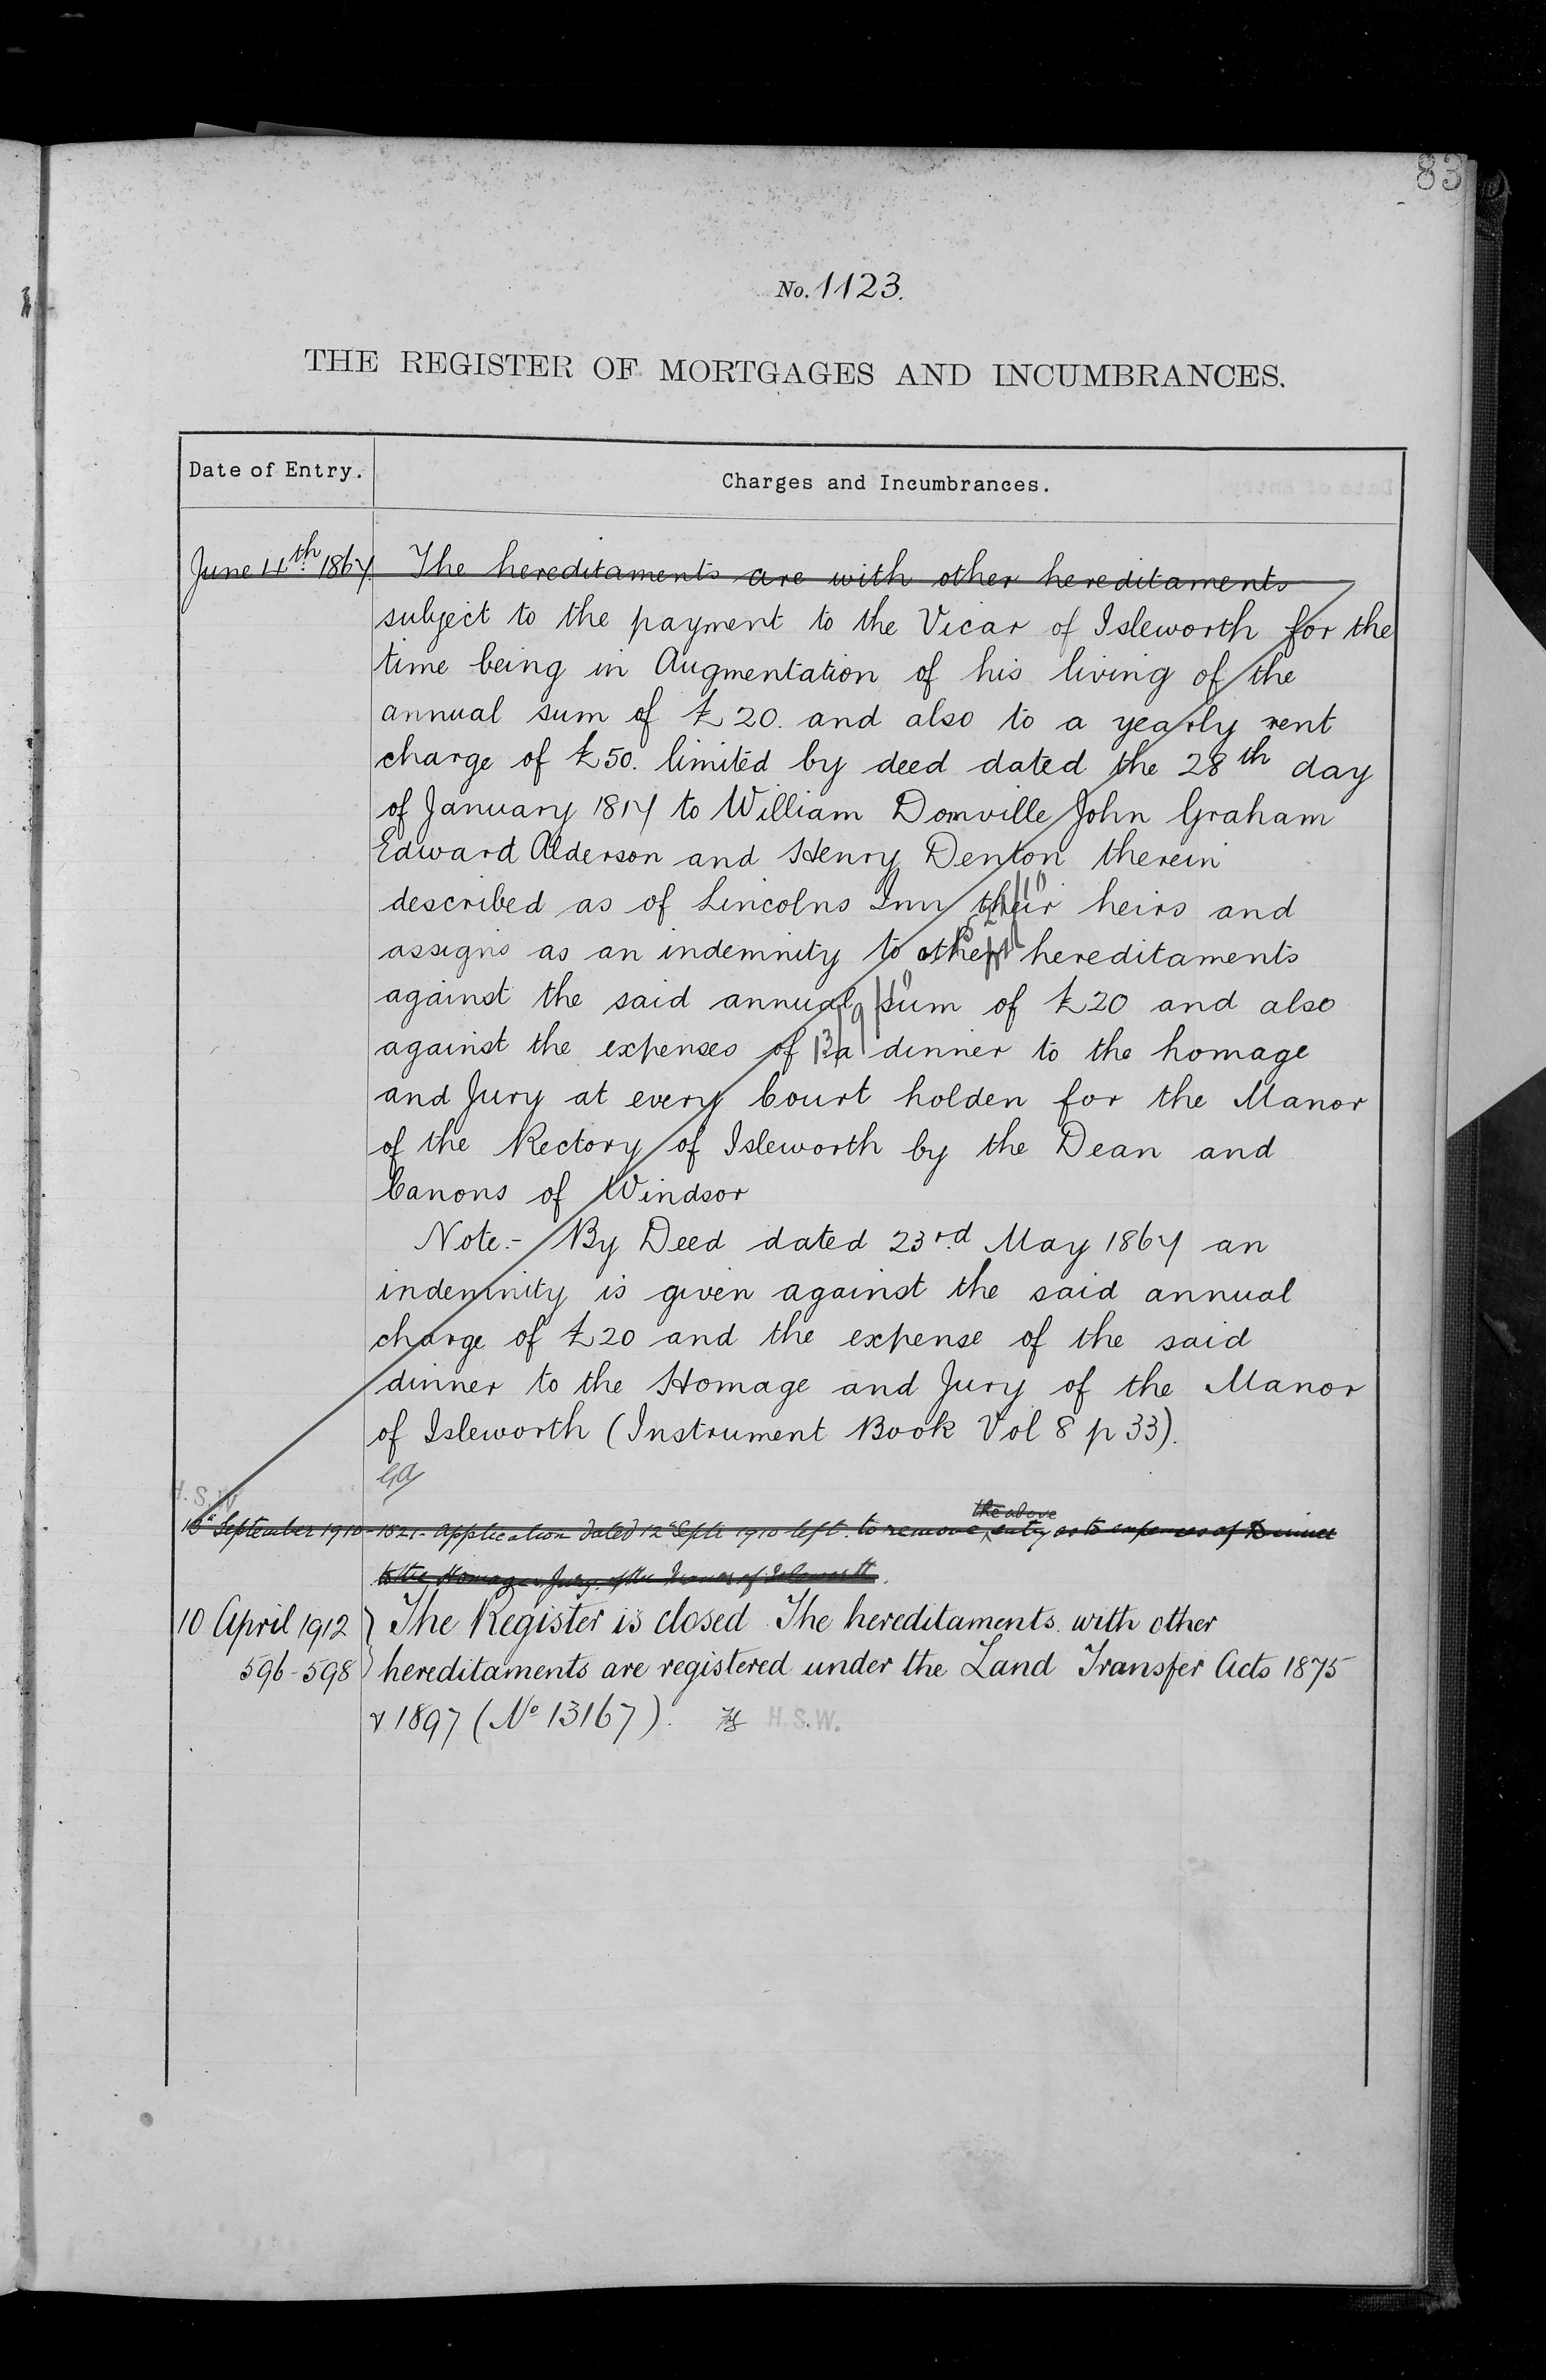 83
No. 1123.
THE REGISTER OF MORTGAGES AND INCUMBRANCES.
Date of Entry.
Charges and Incumbrances.
June 4th 1867. The hereditaments are with other hereditaments
subject to the payment to the Vicar of Isleworth for the
time being in Augmentation of his living of the
annual sum of £20. and also to a yearly rent
charge of £50. limited by deed dated the 28th day
of January 1817 to William Domville John Graham
Edward Alderson and Henry Denton therein
described as of Lincolns Inn their heirs and
assigns as an indemnity to other hereditaments
against the said annual sum of £20 and also
against the expenses of a dinner to the homage
13/9/10
and Jury at every Court holden for the Manor
of the Rectory of Isleworth by the Dean and
Canons of Windsor
Note.- By Deed dated 23rd May 1867 an
indemnity is given against the said annual
charge of £20 and the expense of the said
dinner to the Homage and Jury of the Manor
of Isleworth (Instrument Book Vol 8 p 33).
H.S.W.
the above
13th September 1910-1821- Application dated 12th Septr 1910 left to remove entry as to expenses of Dinner
to the Homage & Jury of the Manor of Isleworth.
10 April 1912 } The Register is closed. The hereditaments with other
596-598 } hereditaments are registered under the Land Transfer Acts 1875
& 1897 (No 13167). H.S.W.